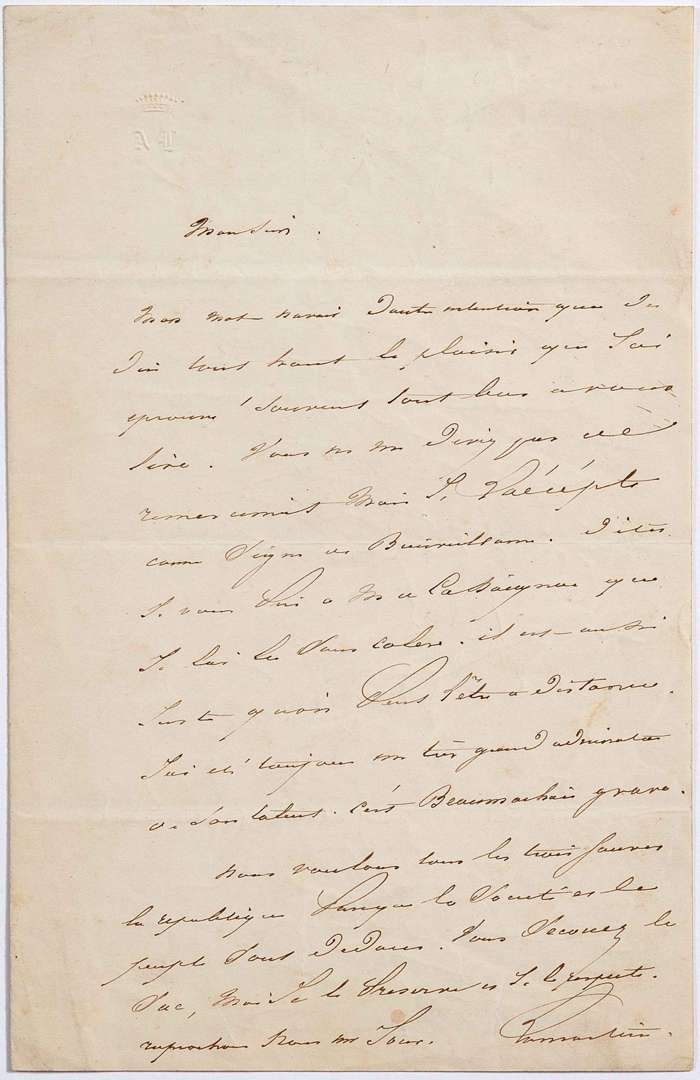 Monsieur.
Mon mot n'avait d'autre intention que de
dire tout haut le plaisir que j'ai
éprouvé souvent tout bas à vous
lire. Vous ne me devez pas de
remerciment mais je l'accepte
comme signe de Bienveillance. Dites
je vous prie à M de que
je lai lu sans colere. il est aussi
juste qu'on peut l'être à distance.
J'ai été toujours un très grand admirateur
de son talent. C'est Beaumarchais grave.
nous voulons tous les trois sauver
la république puisque la Société et le
peuple sont dedans. Vous secouez le
sac, moi je le preserve et je le respecte.
rapprochons nous un jour. Lamartine.